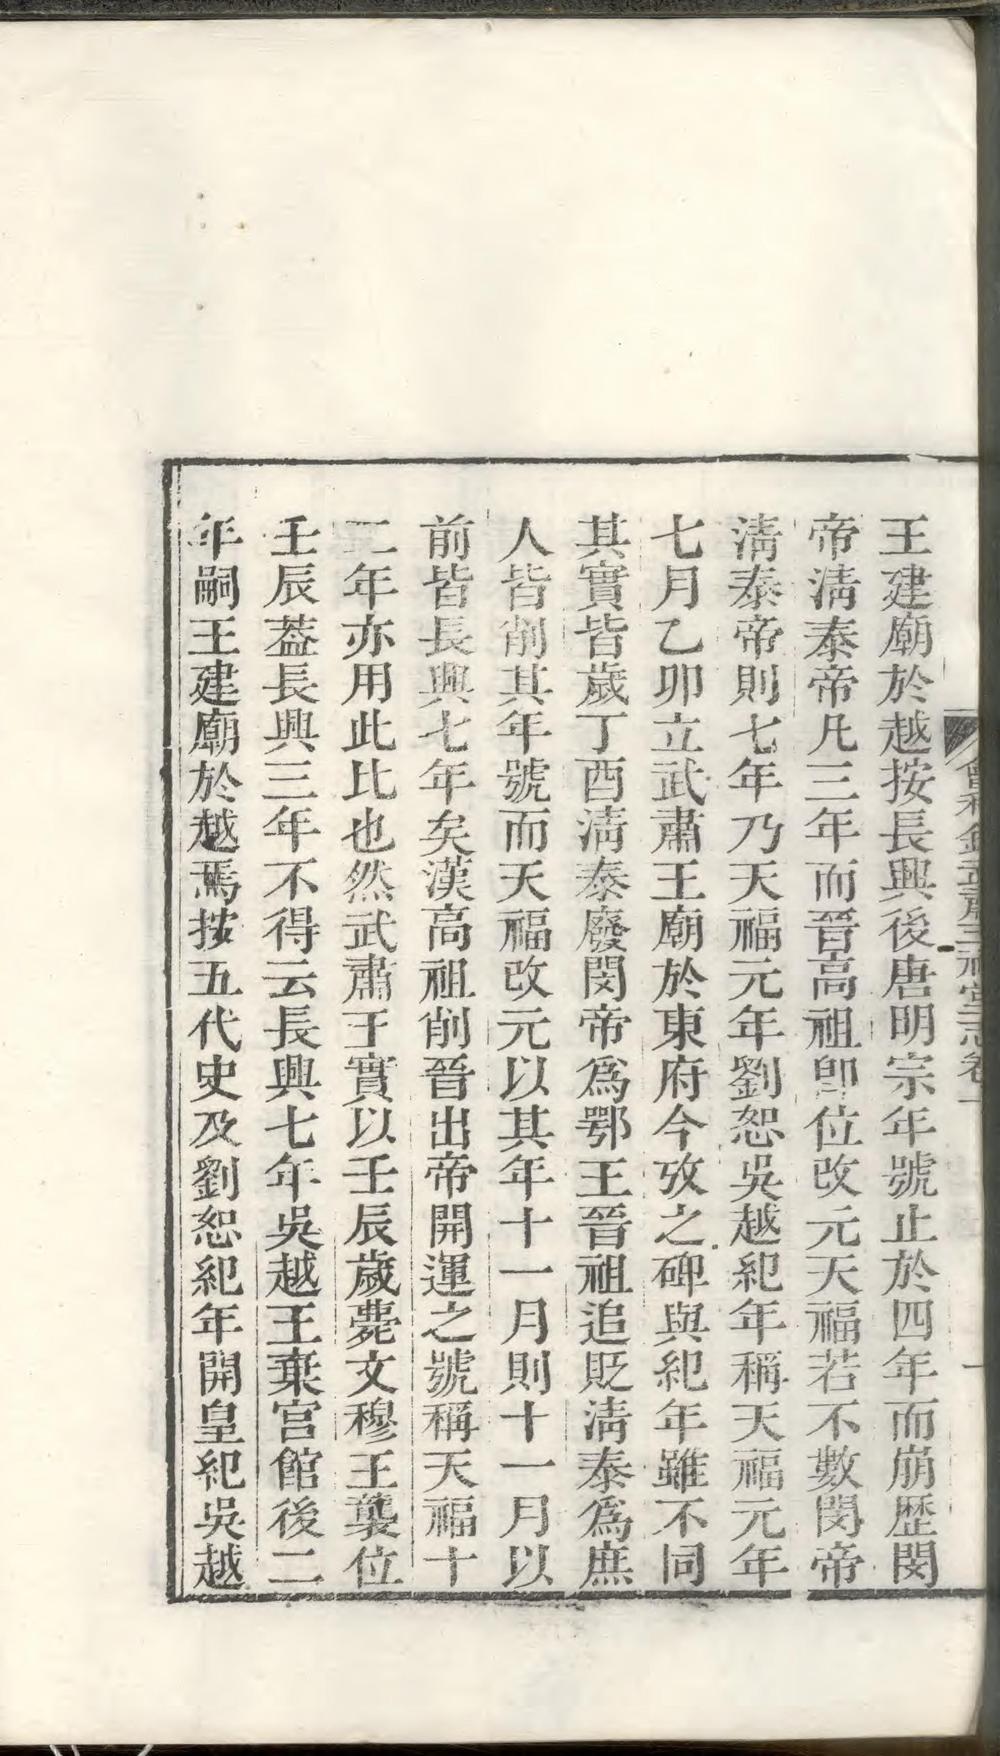 王建廟於越按長興後唐明宗年號止於四年而崩歴閔
帝淸泰帝凡三年而晉高祖卽位改元天福若不數閔帝
淸泰帝則七年乃天福元年劉恕吳越紀年稱天福元年
七月乙卯立武肅王廟於東府今攷之碑與紀年雖不同
其實皆歲丁酉淸泰廢閔帝爲鄂王晉祖追貶淸泰爲庶
人皆削其年號而天福改元以其年十一月則十一月以
前皆長興七年矣漢高祖削晉出帝開運之號稱天福十
二年亦用此比也然武肅王實以壬辰歲薨文穆王襲位
壬辰葢長興三年不得云長興七年吳越王棄宫館後二
年嗣王建廟於越焉按五代史及劉恕紀年開皇紀吳越